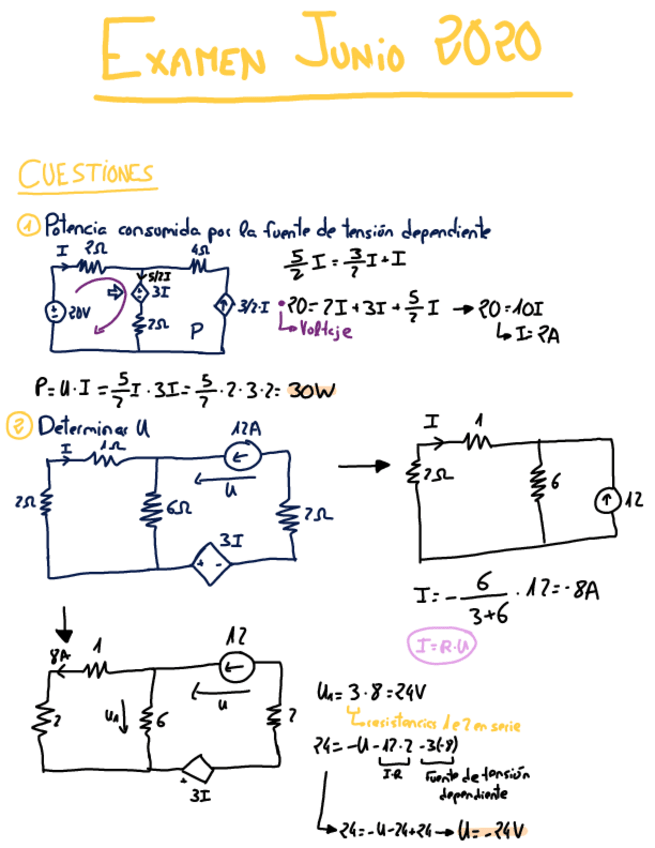 EXAMEN JUNIO 2020
CUESTIONES
① Potencia consumida por la fuente de tensión dependiente
I 2Ω 4Ω
5/2I
3I
20V
2Ω
P
3/2·I
5/2 I = 3/2 I + I
20 = 2I + 3I + 5/2 I → 20 = 10I
↳ Voltaje
↳ I = 2A
P = U · I = 5/2 I · 3I = 5/2 · 2 · 3 · 2 = 30W
② Determinar U
I 1Ω 12A
U
2Ω 6Ω 2Ω
3I
+ -
I 1
2Ω 6 12
I = - 6/(3+6) · 12 = -8A
I = R·U
8A 1 12
U
2 U₁ 6 2
3I
+
U₁ = 3 · 8 = 24V
↳ resistencias 1 e 2 en serie
24 = -U - 12 · 2 - 3(-8)
I·R Fuente de tensión
dependiente
↳ 24 = -U - 24 + 24 → U = -24V